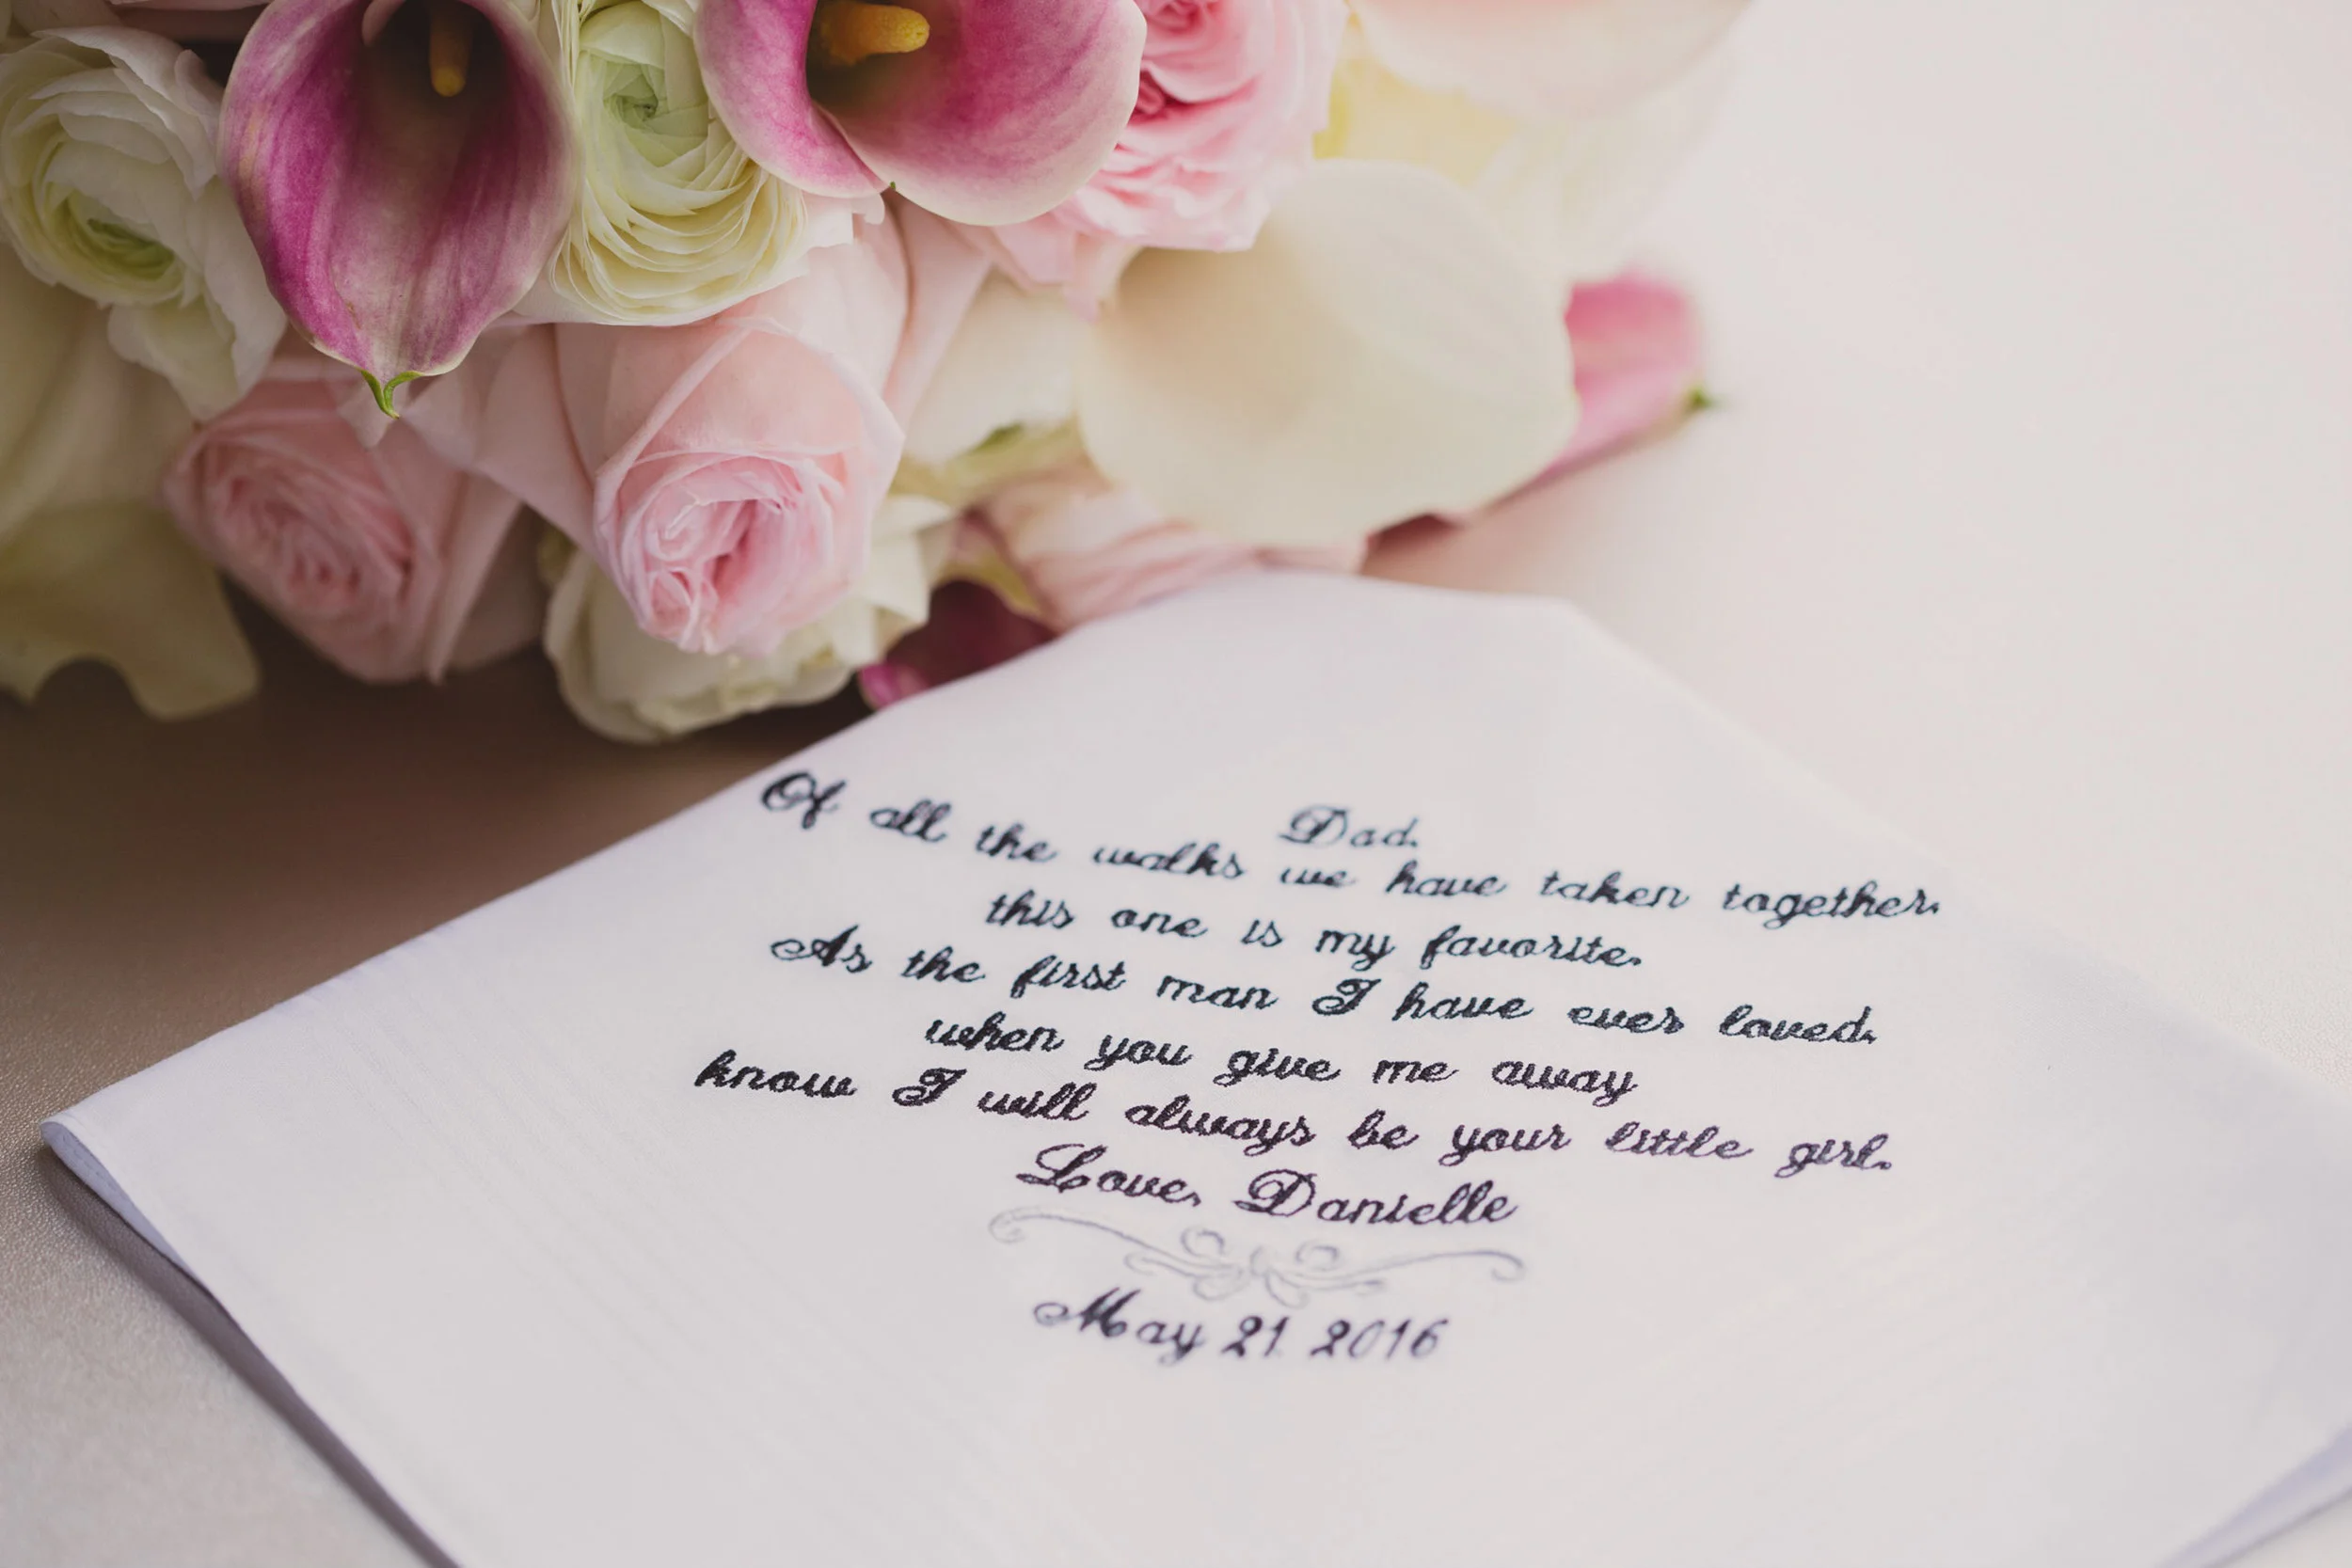 Dad,
Of all the walks we have taken together,
this one is my favorite.
As the first man I have ever loved,
when you give me away
know I will always be your little girl.
Love, Danielle
May 21, 2016